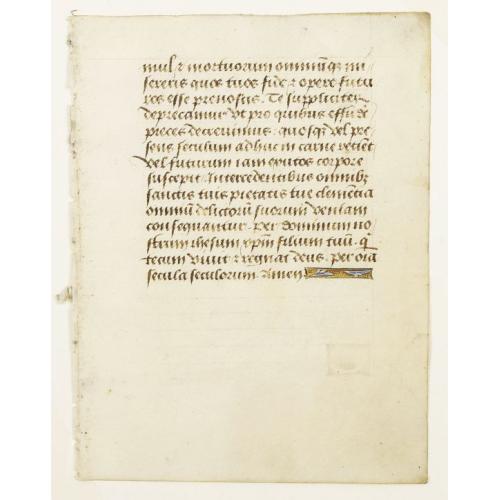 mul & mortuorum omniūqz mi
sereris quos tuos fide & opere futu
ros esse prenoscis. Te suppliciter
deprecamur vt pro quibus effūdē
preces decreuimus: quosqz vel pre
sens seculum adhuc in carne retinet
vel futurum iam exutos corpore
suscepit. Intercedentibus omnibz
sanctis tuis pietatis tue clementia
omniū delictorū suorum veniam
consequantur. per dominum no
strum ihesum xpm̄ filium tuū. q̄
tecum viuit & regnat deus. per oīa
secula seculorum. Amen